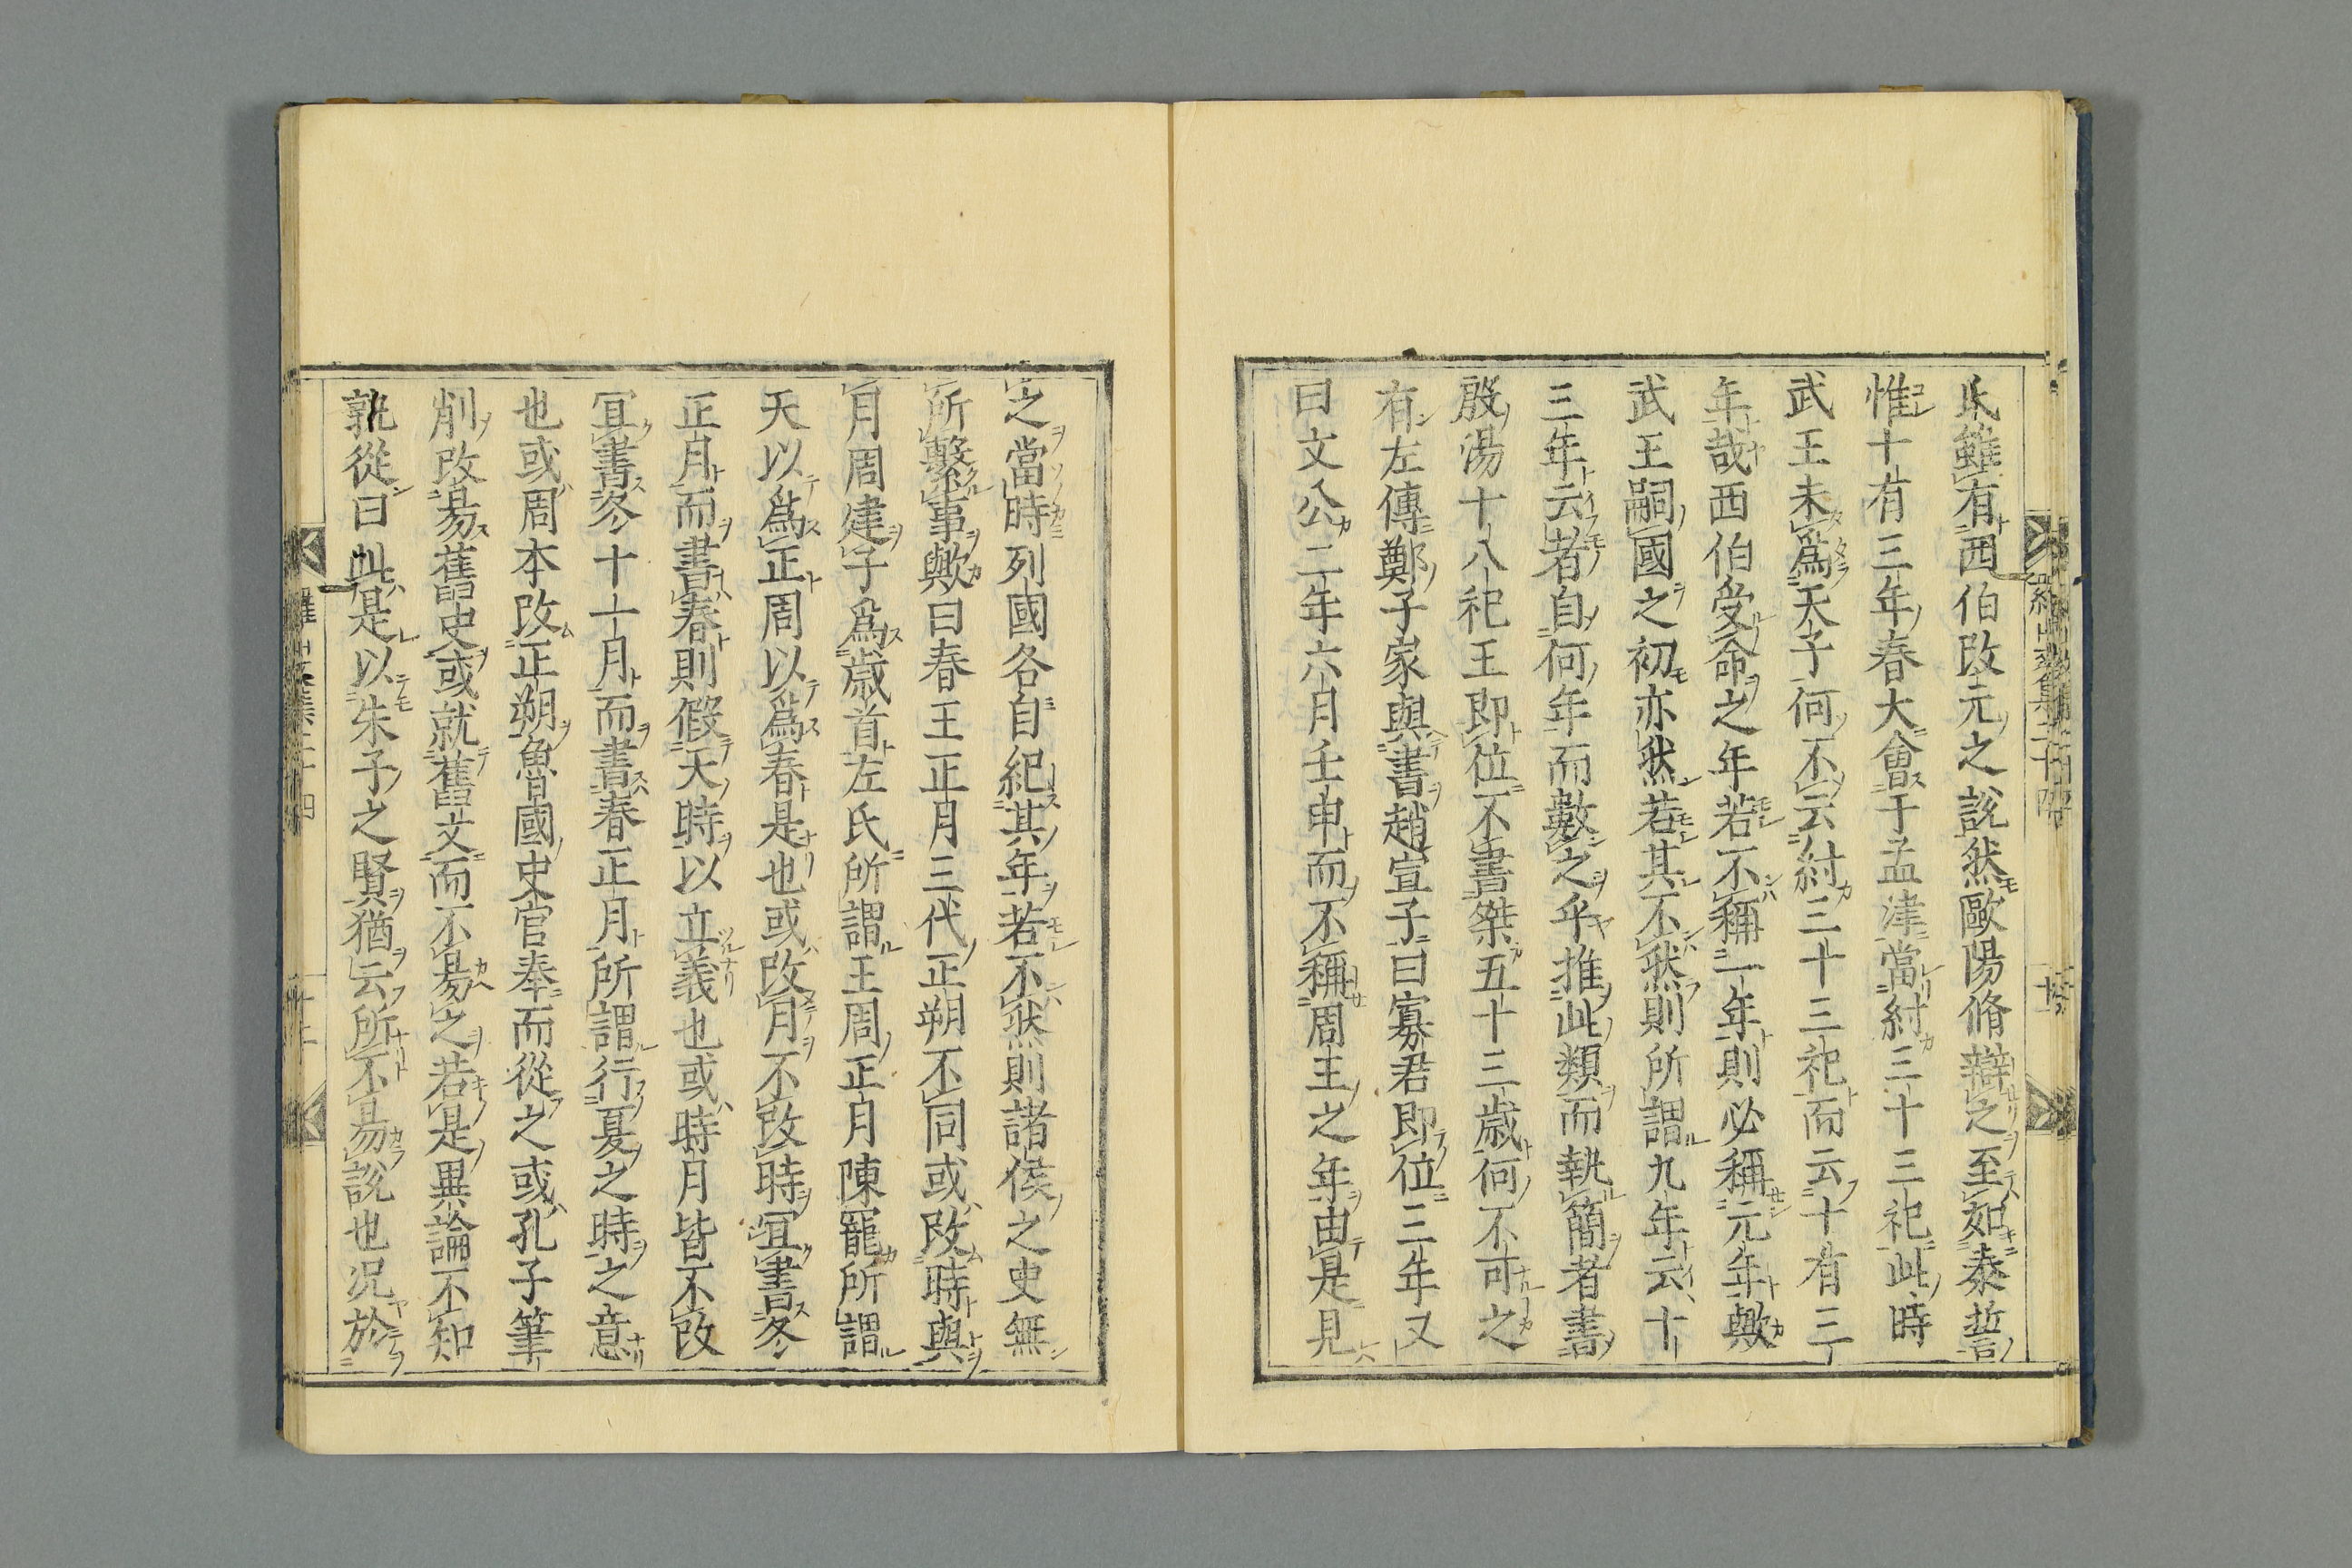 氏雖有西伯改元之說然歐陽脩辯之至如泰誓
惟十有三年春大會于孟津當紂三十三祀此時
武王未爲天子何不云紂三十三祀而云十有三
年哉西伯受命之年若不稱一年則必稱元年歟
武王嗣國之初亦然若其不然則所謂九年云十
三年云者自何年而數之乎推此類而執簡者書
殷湯十八祀王即位不書桀五十三歲何不可之
有左傳鄭子家與書趙宣子曰寡君即位三年又
曰文公二年六月壬申而不稱周王之年由是見
之當時列國各自紀其年若不然則諸侯之史無
所繫事歟曰春王正月三代正朔不同或改時與
月周建子爲歲首左氏所謂王周正月陳寵所謂
天以爲正周以爲春是也或改月不改時冝書冬
正月而書春則假天時以立義也或時月皆不改
冝書冬十一月而書春正月所謂行夏之時之意
也或周本改正朔魯國史官奉而從之或孔子筆
削改易舊史或就舊文而不易之若是異論不知
孰從曰此是以朱子之賢猶云所不易說也況於